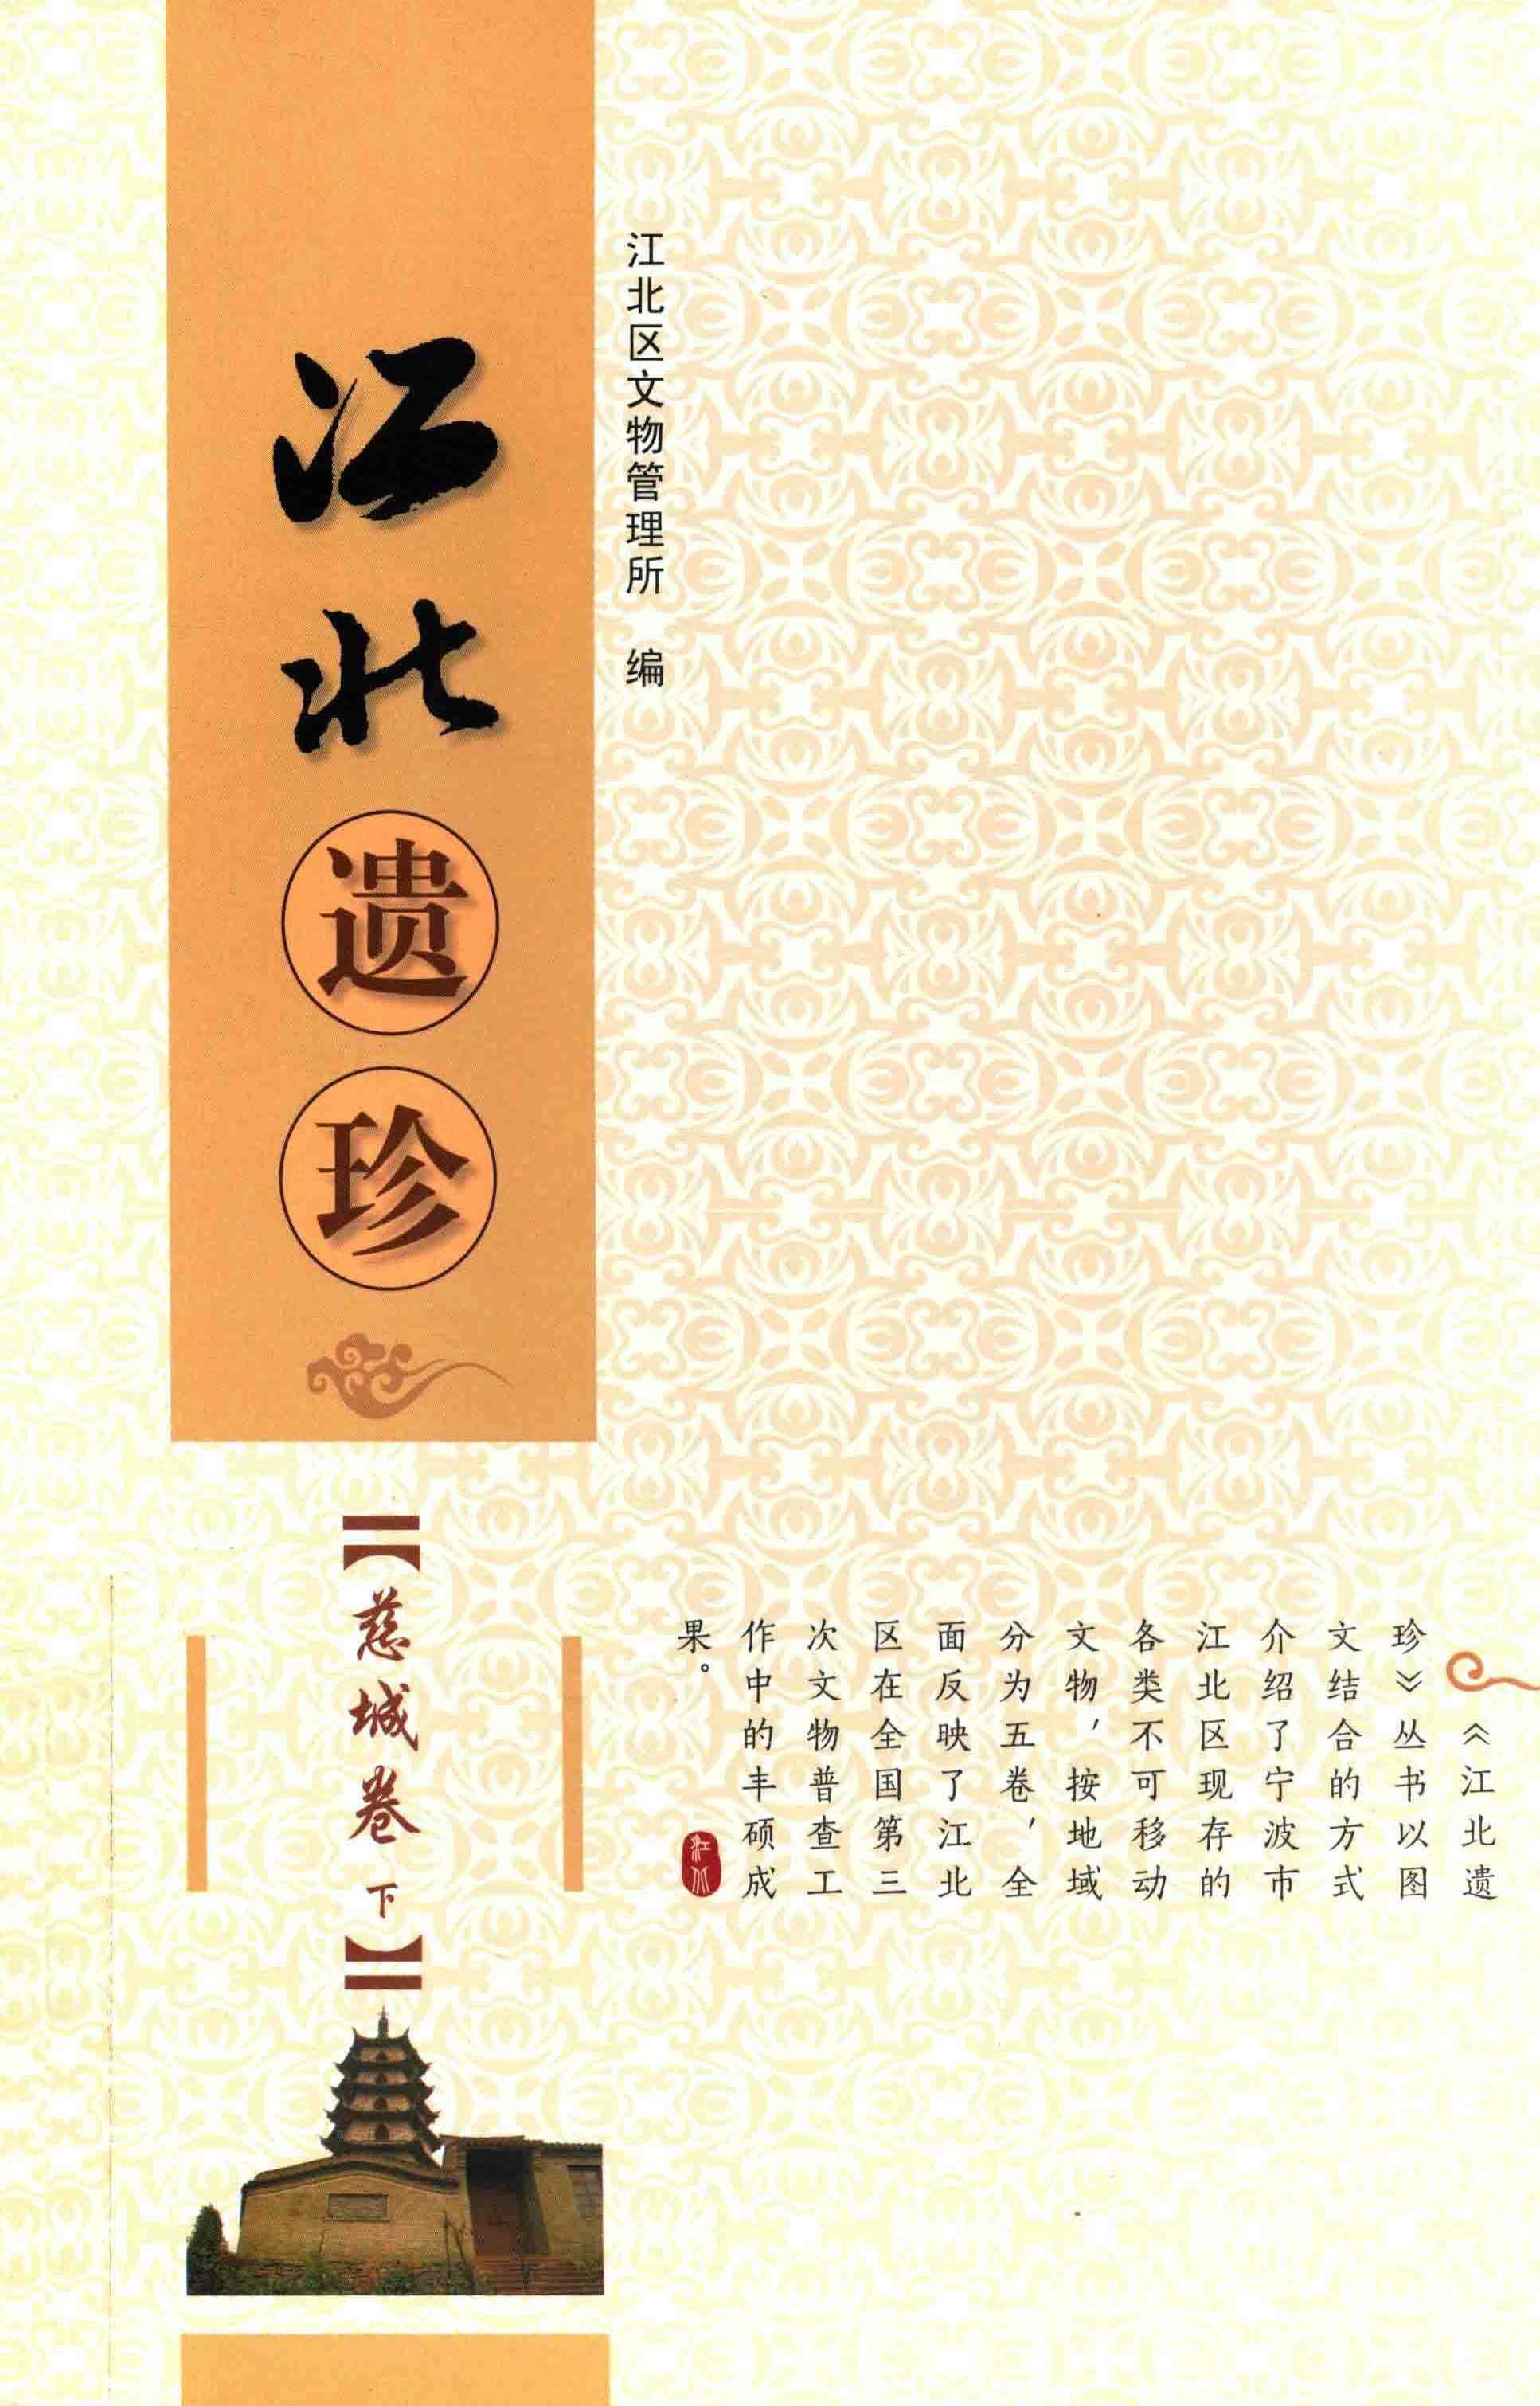 江北遗珍
【慈城卷 下】
江北区文物管理所 编
《江北遗
珍》丛书以图
文结合的方式
介绍了宁波市
江北区现存的
各类不可移动
文物，按地域
分为五卷，全
面反映了江北
区在全国第三
次文物普查工
作中的丰硕成
果。
江北